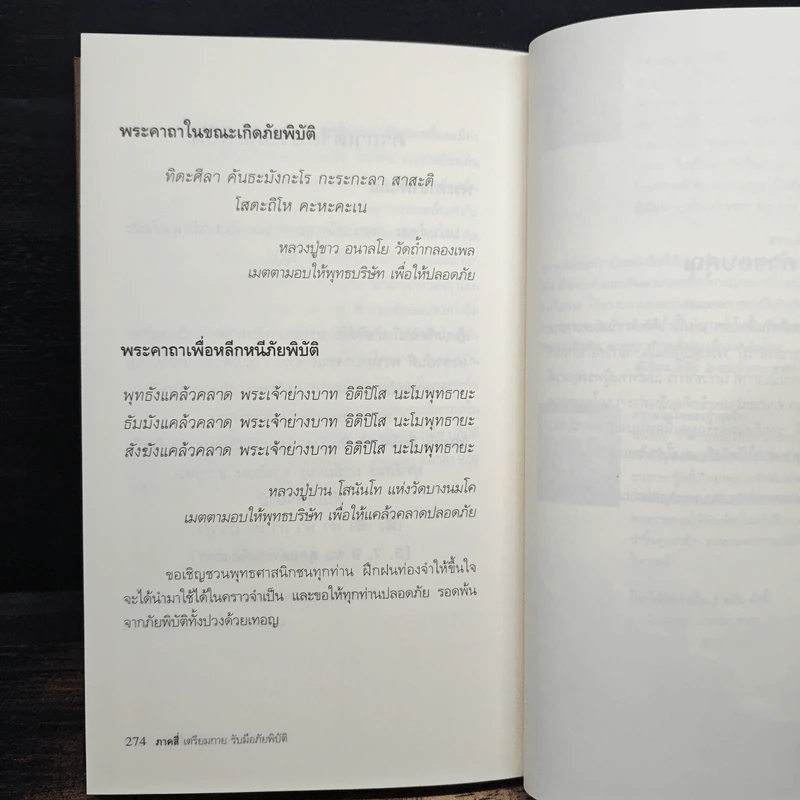 พระคาถาในขณะเกิดภัยพิบัติ
ทิตะศีลา คันธะมังกะโร กะระกะลา สาสะติ
โสตะถิโห คะหะคะเน
หลวงปู่ขาว อนาลโย วัดถ้ำกลองเพล
เมตตามอบให้พุทธบริษัท เพื่อให้ปลอดภัย
พระคาถาเพื่อหลีกหนีภัยพิบัติ
พุทธังแคล้วคลาด พระเจ้าย่างบาท อิติปิโส นะโมพุทธายะ
ธัมมังแคล้วคลาด พระเจ้าย่างบาท อิติปิโส นะโมพุทธายะ
สังฆังแคล้วคลาด พระเจ้าย่างบาท อิติปิโส นะโมพุทธายะ
หลวงปู่ปาน โสนันโท แห่งวัดบางนมโค
เมตตามอบให้พุทธบริษัท เพื่อให้แคล้วคลาดปลอดภัย
ขอเชิญชวนพุทธศาสนิกชนทุกท่าน ฝึกฝนท่องจำให้ขึ้นใจ
จะได้นำมาใช้ได้ในคราวจำเป็น และขอให้ทุกท่านปลอดภัย รอดพ้น
จากภัยพิบัติทั้งปวงด้วยเทอญ
274 ภาคสี่ เตรียมกาย รับมือภัยพิบัติ